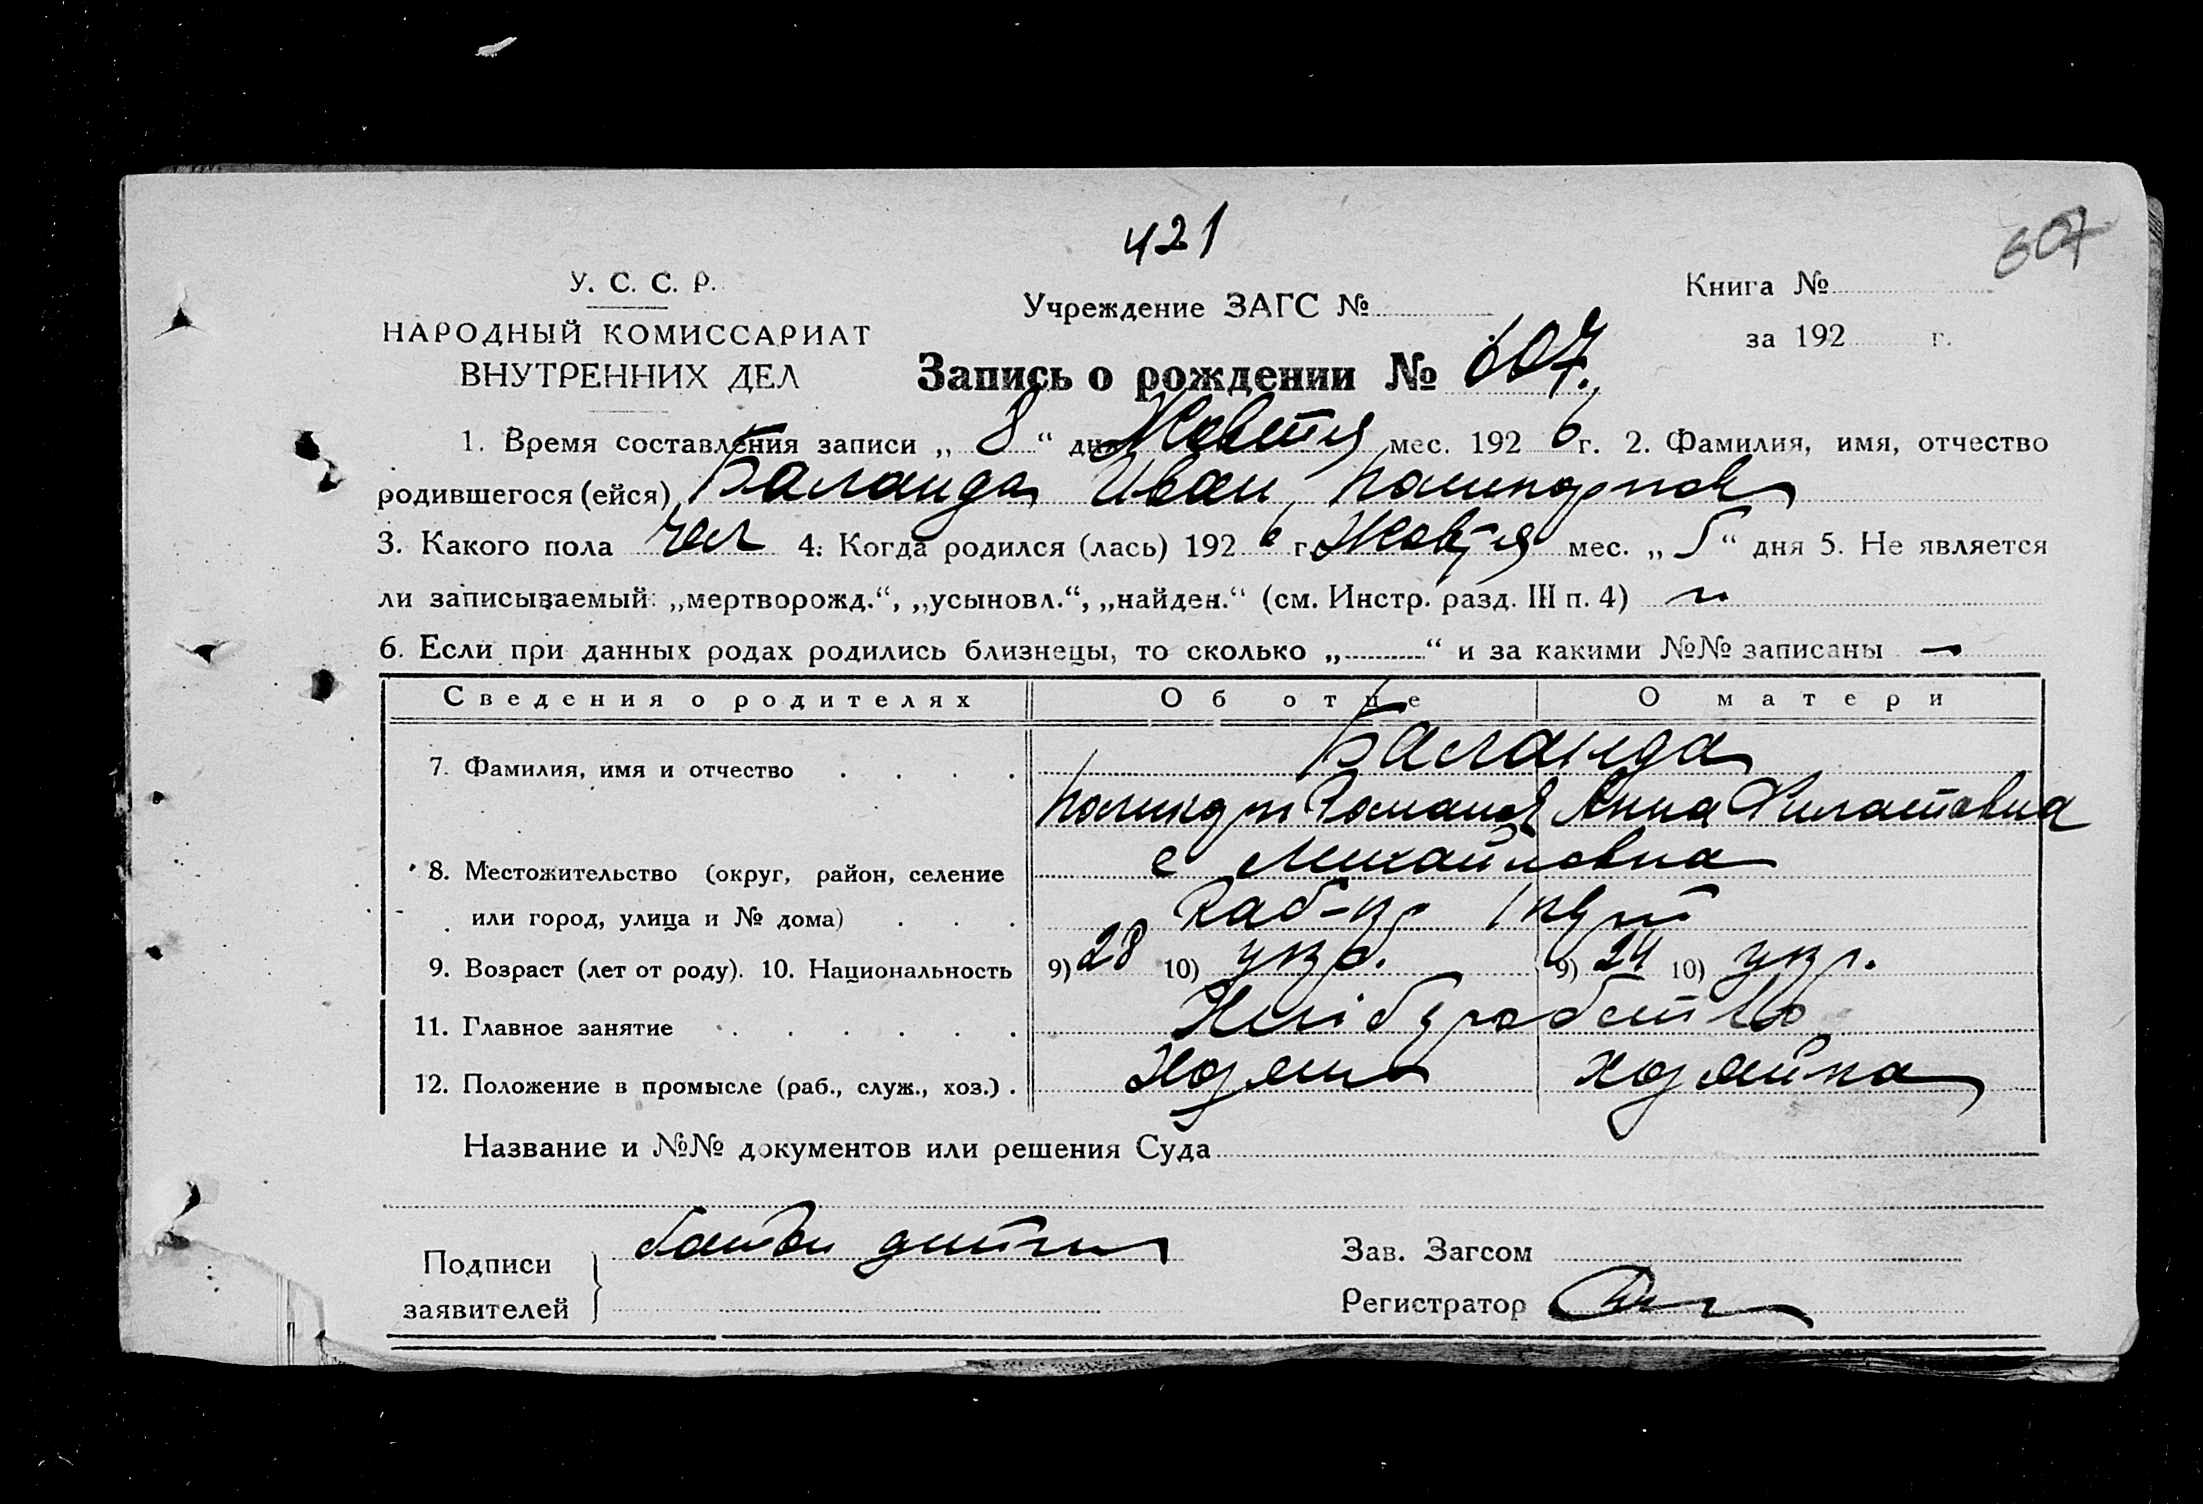 421
607
У. С. С. Р.
НАРОДНЫЙ КОМИССАРИАТ
ВНУТРЕННИХ ДЕЛ
Учреждение ЗАГС №
Книга №
за 192 г.
Запись о рождении № 607.
1. Время составления записи „ 8 “ дня Жовтня мес. 192 6 г. 2. Фамилия, имя, отчество
родившегося (ейся) Баланда Иван
3. Какого пола чол 4. Когда родился (лась) 192 6 г. Жовтня мес. „ 5 “ дня 5. Не является
ли записываемый: „мертворожд.“, „усыновл.“, „найден.“ (см. Инстр. разд. III п. 4)
6. Если при данных родах родились близнецы, то сколько „ “ и за какими №№ записаны —
Сведения о родителях Об отце О матери
7. Фамилия, имя и отчество Баланда
Анна Филатовна
8. Местожительство (округ, район, селение с Михайловка
или город, улица и № дома)
9. Возраст (лет от роду). 10. Национальность 9) 28 10) укр. 9) 24 10) укр.
11. Главное занятие Хліборобство
12. Положение в промысле (раб., служ., хоз.) Хозяин хозяйка
Название и №№ документов или решения Суда
Подписи заявителей
Зав. Загсом
Регистратор